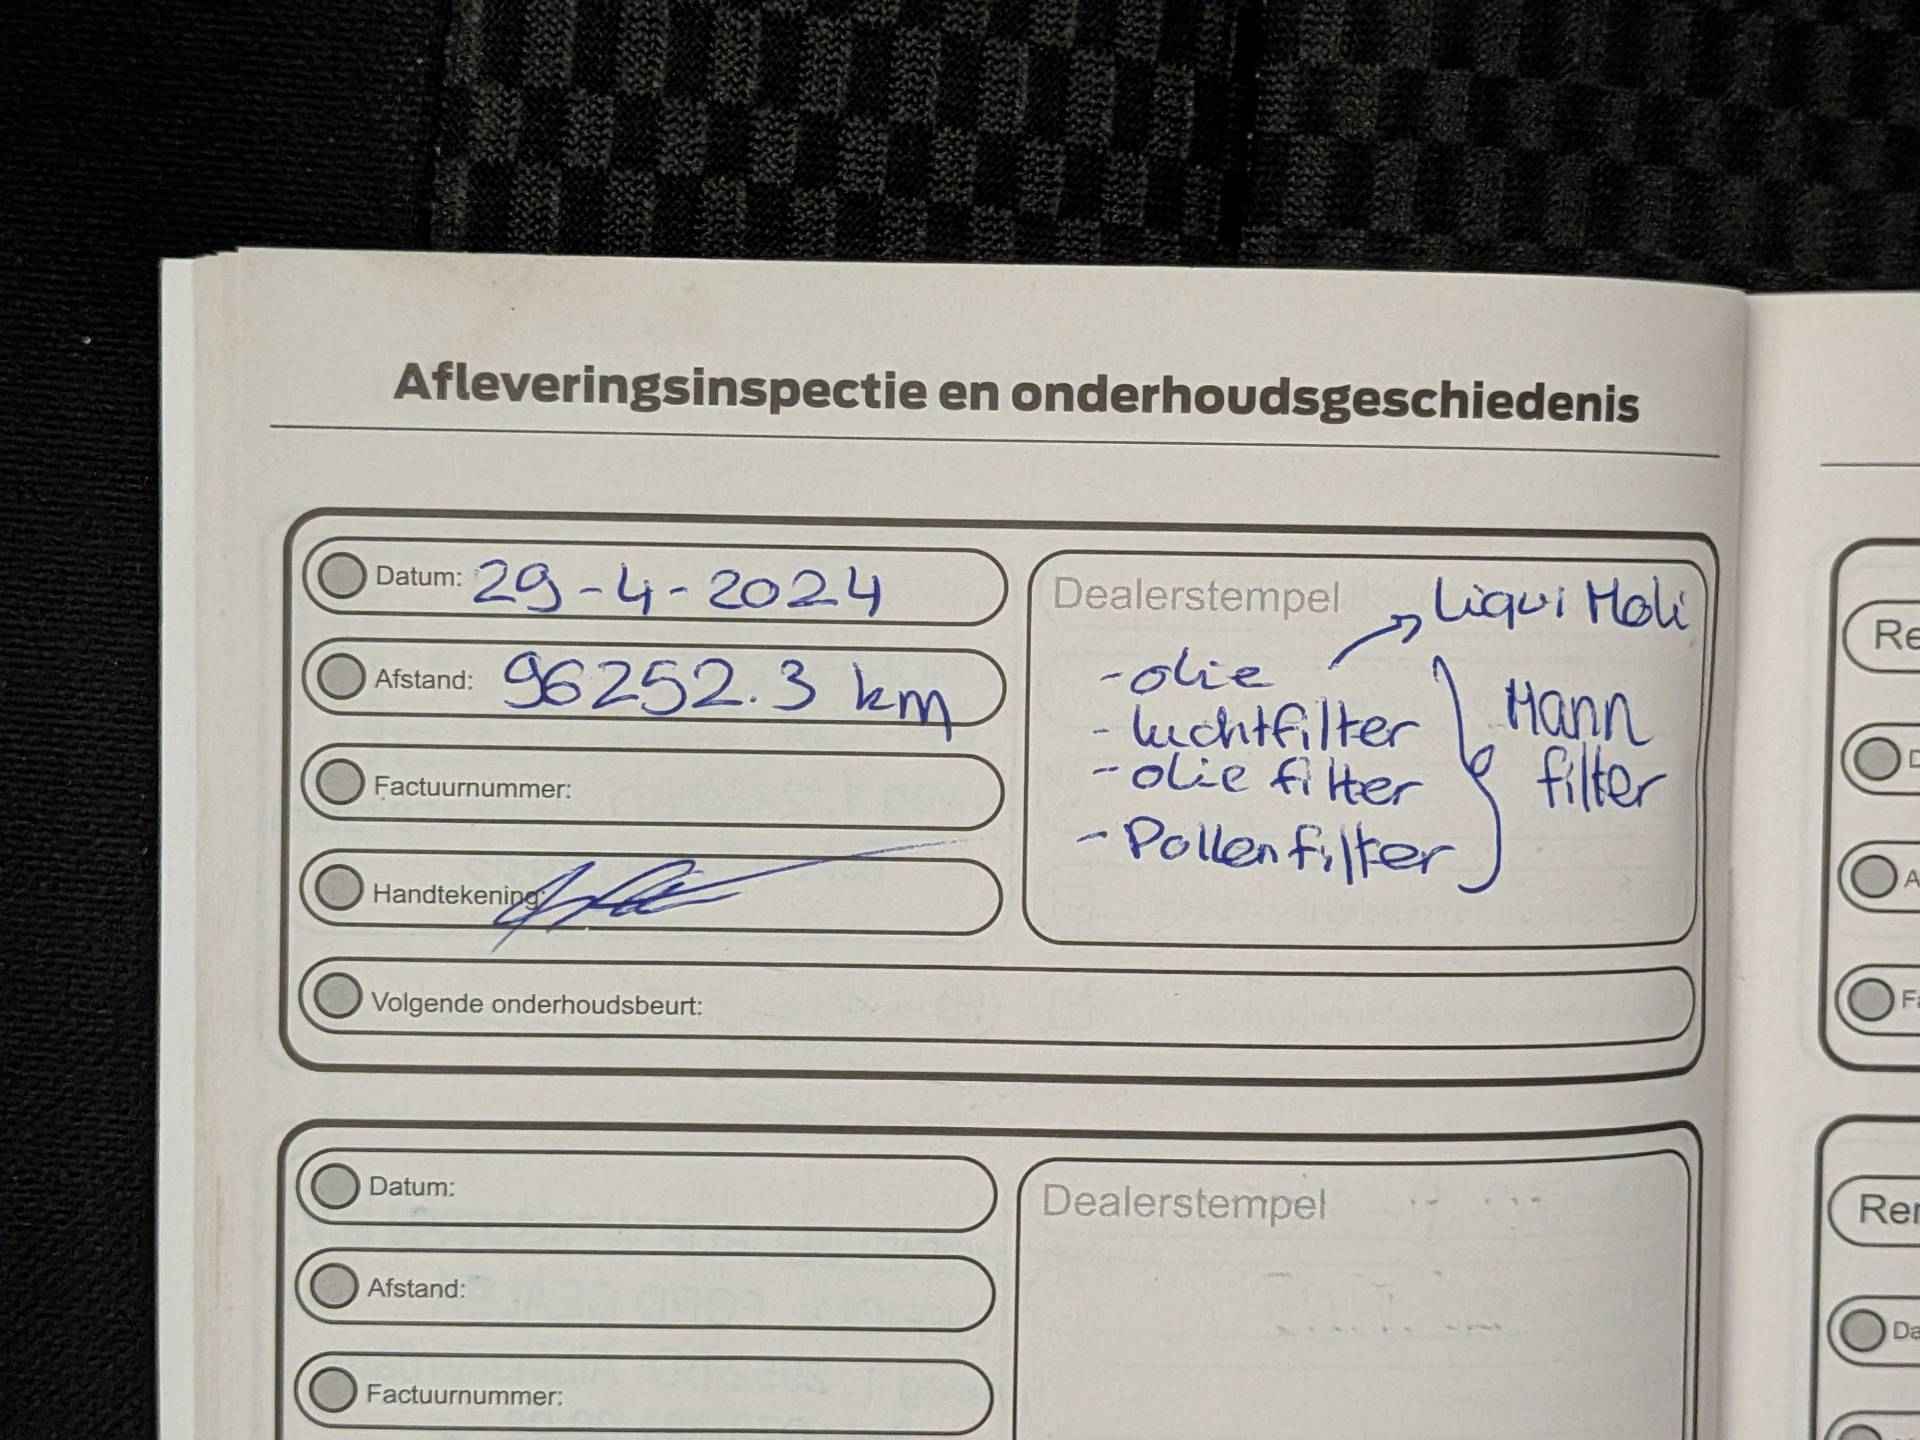 Afleveringsinspectie en onderhoudsgeschiedenis
Datum: 29-4-2024
Afstand: 96252.3 km
Factuurnummer:
Handtekening:
Volgende onderhoudsbeurt:
Dealerstempel
Liqui Moli
- olie
- luchtfilter
- olie filter
- Pollenfilter
Mann
filter
Datum:
Afstand:
Factuurnummer:
Dealerstempel